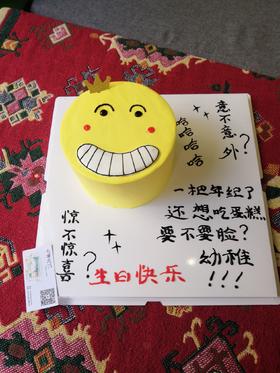 哈哈哈哈
意不意外?
一把年纪了
还想吃蛋糕
要不要脸?
幼稚!!!
惊不惊喜?
生日快乐